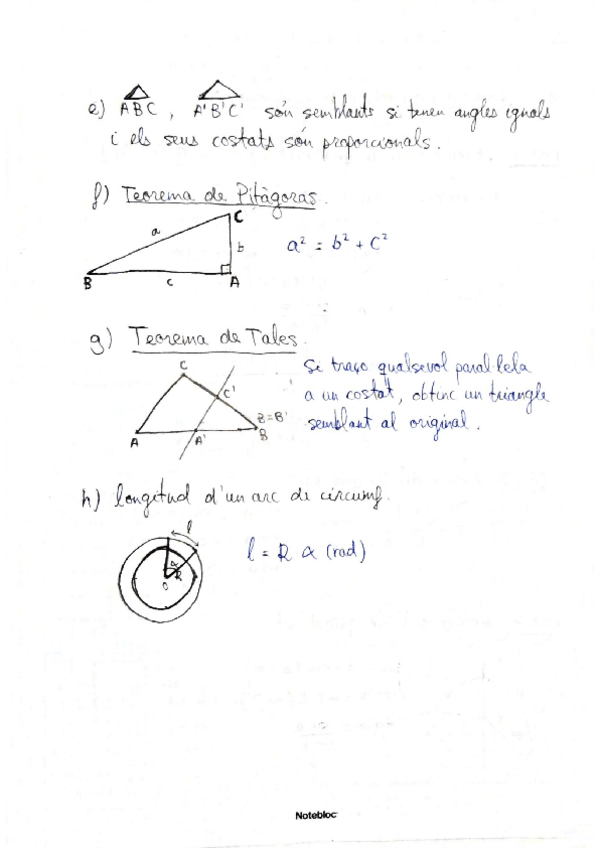 e) ABC, A'B'C' són semblants si tenen angles iguals
i els seus costats són proporcionals.
f) Teorema de Pitàgoras.
C
a
b
a² = b² + c²
B
c
A
g) Teorema de Tales.
C
Si traço qualsevol paral·lela
C'
a un costat, obtinc un triangle
B=B'
semblant al original.
A
A'
B
h) longitud d'un arc de circumf.
l
l = R α (rad)
α
R
O
Notebloc